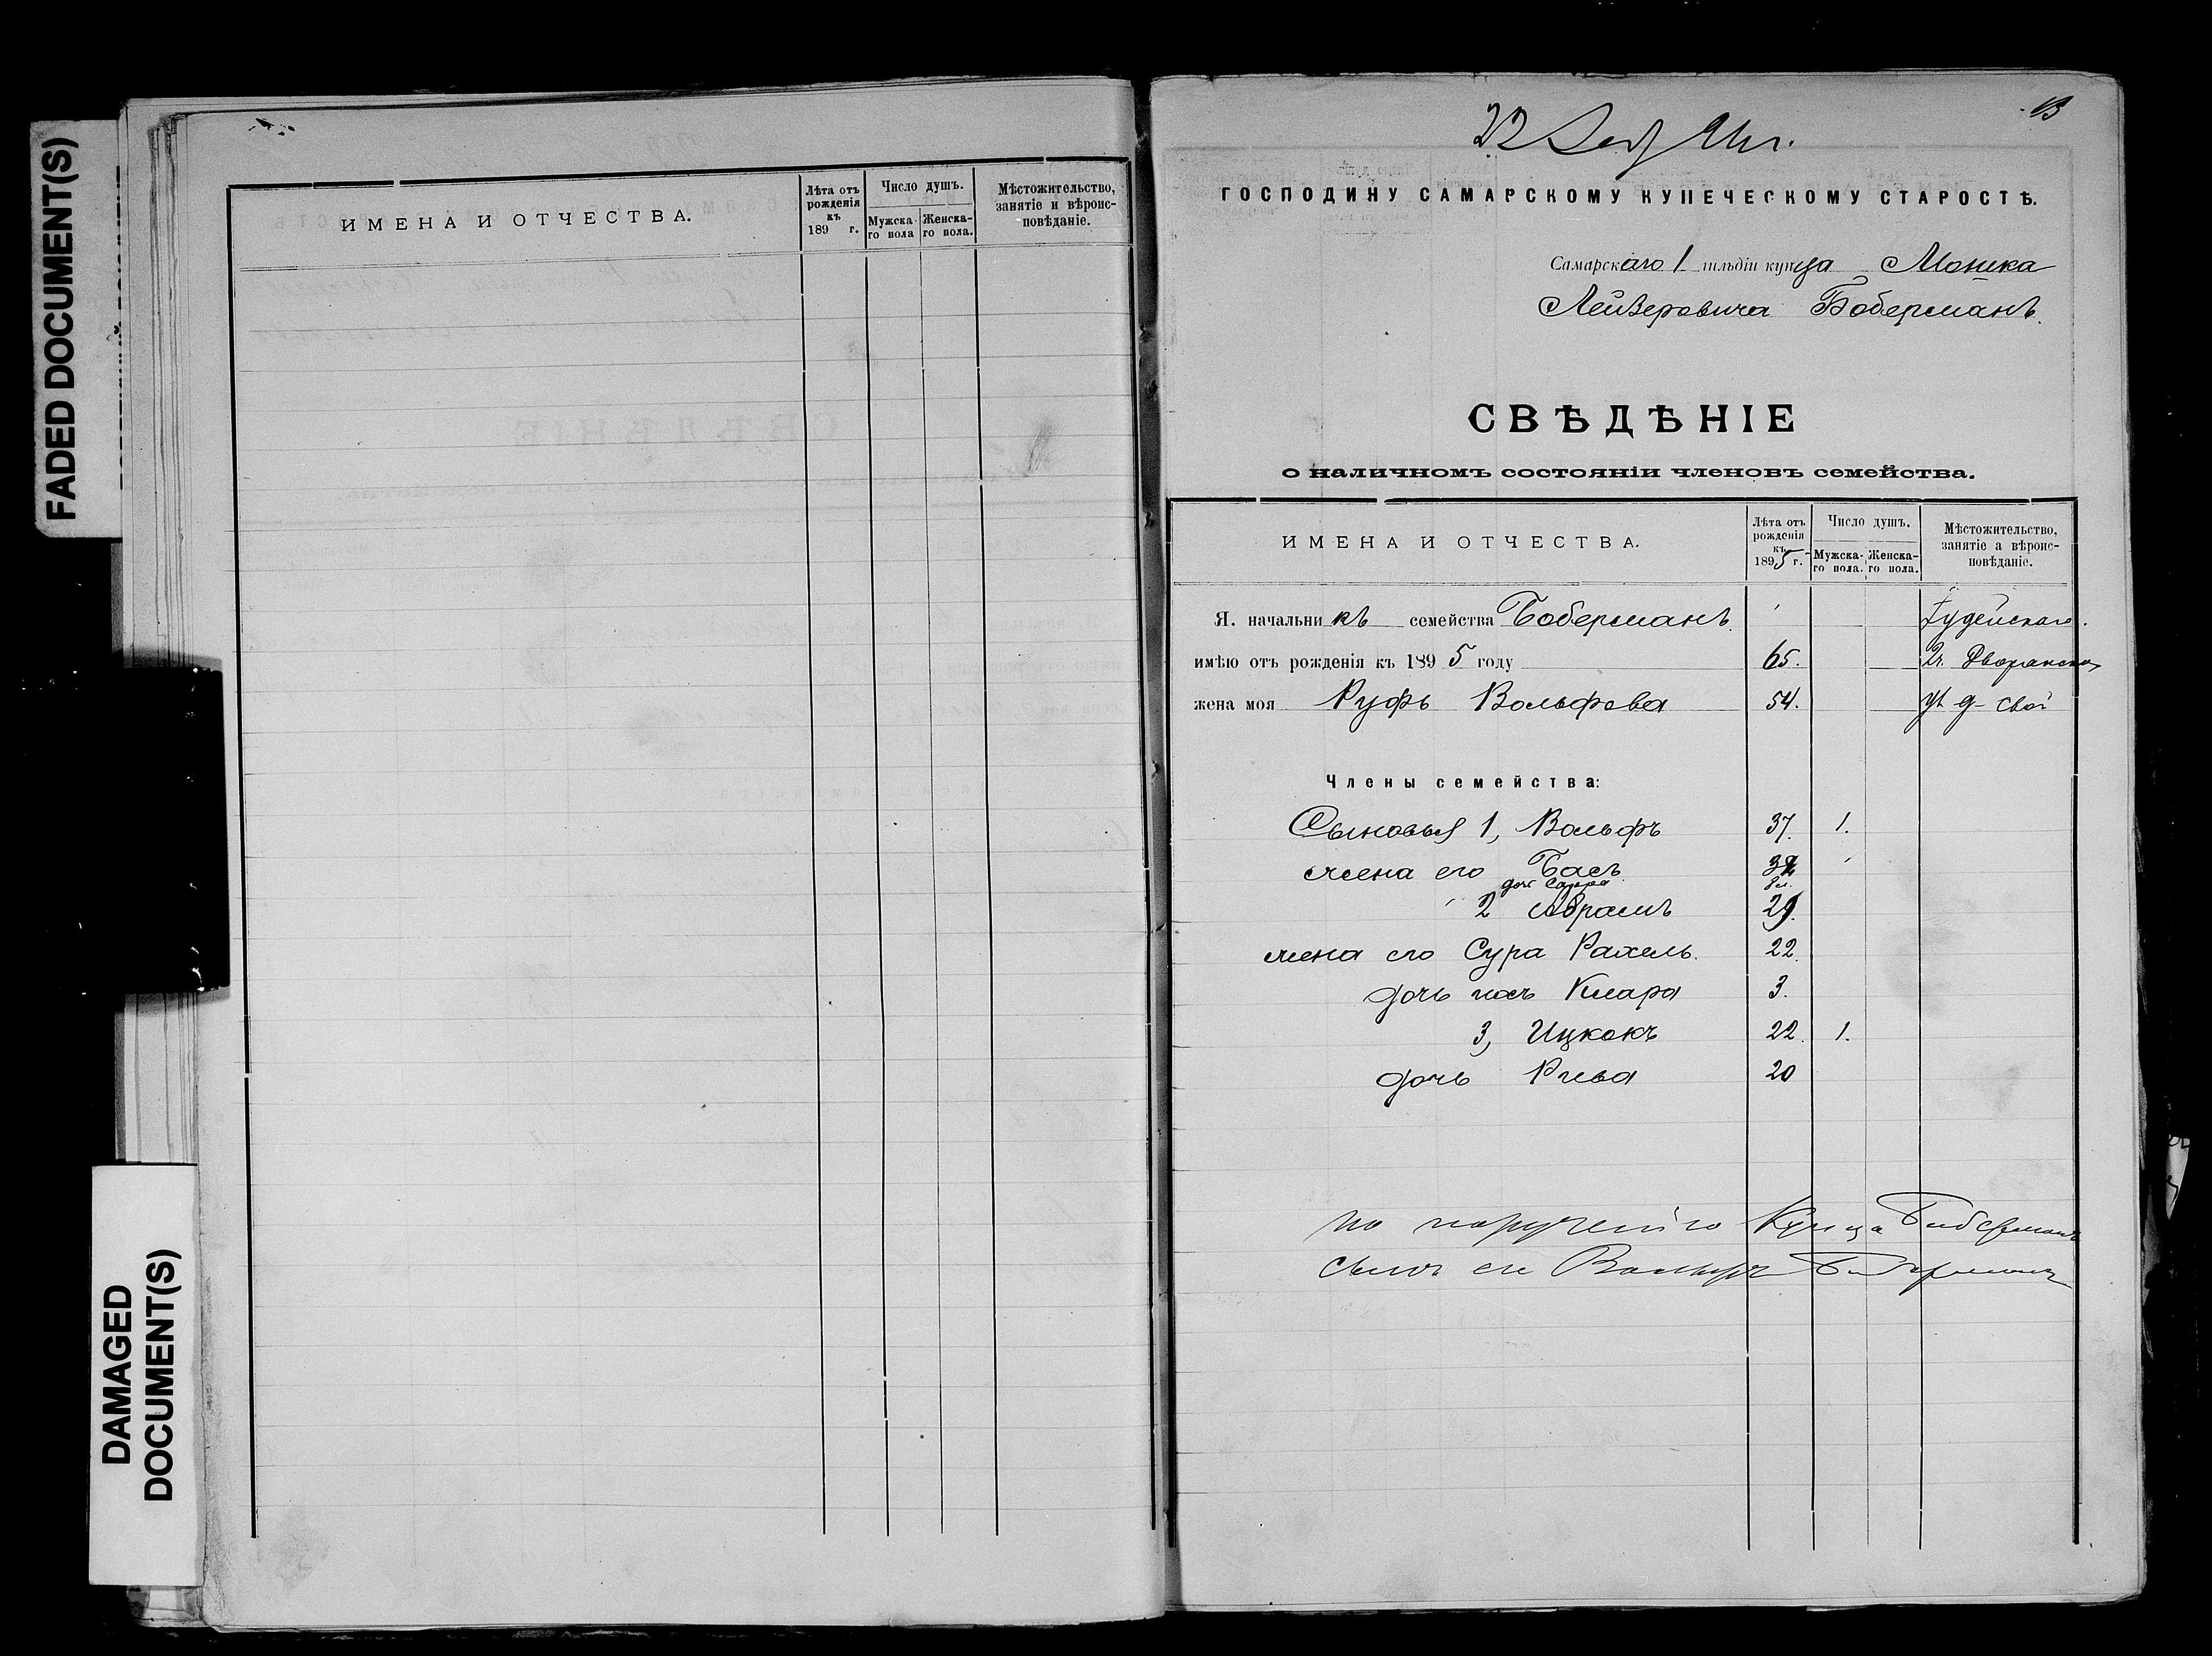 FADED DOCUMENT(S)
DAMAGED
DOCUMENT(S)
ИМЕНА И ОТЧЕСТВА.
Лѣта отъ рожденія къ 189 г.
Число душъ.
Мужска-го пола
Женска-го пола.
Мѣстожительство, занятіе и вѣроис-повѣданіе.
22
ГОСПОДИНУ САМАРСКОМУ КУПЕЧЕСКОМУ СТАРОСТѢ.
Самарскаго 1 гильдіи купца Мошка
Лейзеровича Боберманъ.
СВѢДѢНІЕ
о наличномъ состояніи членовъ семейства.
ИМЕНА И ОТЧЕСТВА.
Лѣта отъ рожденія къ 1895 г.
Число душъ.
Мужска-го пола.
Женска-го пола.
Мѣстожительство, занятіе а вѣроис-повѣданіе.
Я. начальникъ семейства Боберманъ Іудейскаго.
имѣю отъ рожденія къ 1895 году 65. Дворянская
жена моя Руфь Вольфова 54. д свой
Члены семейства:
Сыновья 1, Вольфъ 37. 1.
жена его Бася
доч Сарра 8 л.
2 Абрамъ 29.
жена его Сура Рахель. 22.
дочь ихъ Клара 3.
3, Ицкокъ 22. 1.
дочь Рива 20
по порученію Купца Боберманъ
сынъ его Вольфъ Боберманъ